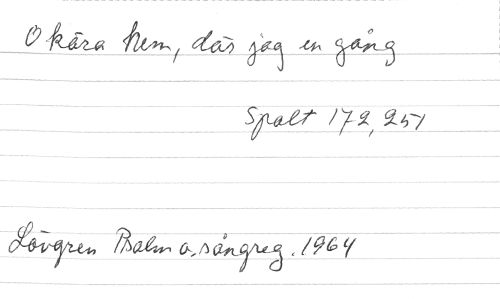 O kära hem, där jag en gång
Spalt 172, 251
Lövgren Psalm o. sångreg. 1964